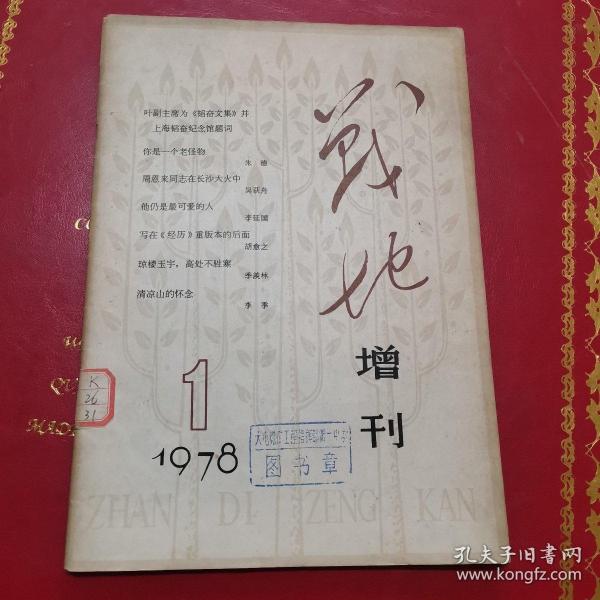 叶副主席为《韬奋文集》并
上海韬奋纪念馆题词
你是一个老怪物
朱德
周恩来同志在长沙大火中
吴荻舟
他仍是最可爱的人
李延国
写在《经历》重版本的后面
胡愈之
琼楼玉宇，高处不胜寒
季羡林
清凉山的怀念
李季
战地
增刊
1
1978
K
26
31
图书章
ZHAN DI ZENG KAN
孔夫子旧书网
www.kongfz.com